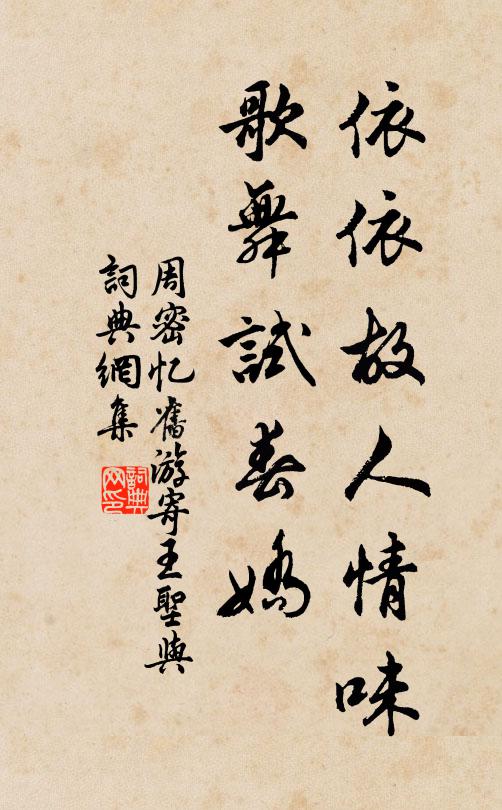 依依故人情味
歌舞試春嬌
周密忆舊游寄王聖與
詞典網集
詞典網印